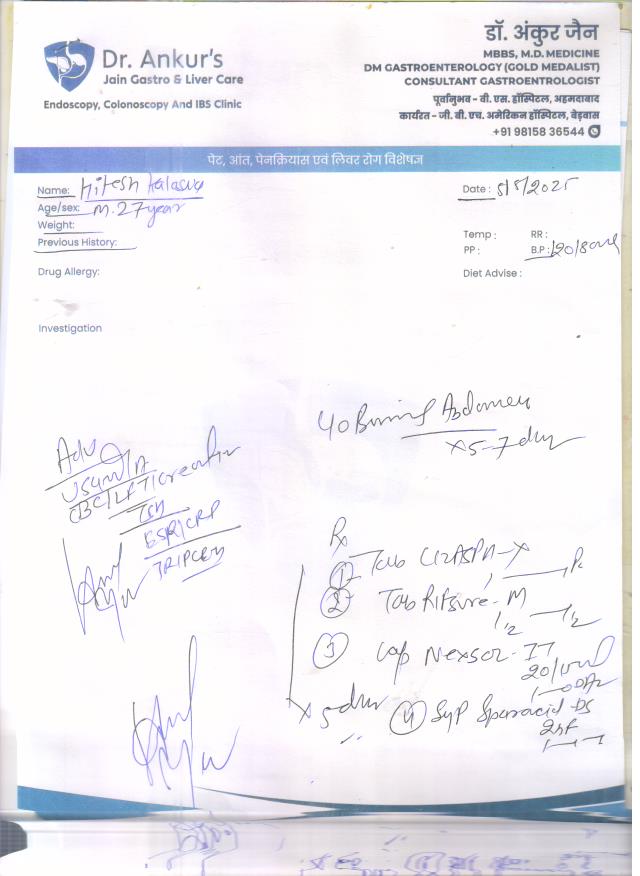 Dr. Ankur's
Jain Gastro & Liver Care
Endoscopy, Colonoscopy And IBS Clinic
डॉ. अंकुर जैन
MBBS, M.D. MEDICINE
DM GASTROENTEROLOGY (GOLD MEDALIST)
CONSULTANT GASTROENTROLOGIST
पूर्वानुभव - वी. एस. हॉस्पिटल, अहमदाबाद
कार्यरत - जी. बी. एच. अमेरिकन हॉस्पिटल, बेड़वास
+91 98158 36544
पेट, आंत, पेनक्रियास एवं लिवर रोग विशेषज्ञ
Name: Hitesh
Date: 5/8/2025
Age/sex: M. 27 year
Weight:
Previous History:
Temp: RR:
PP: B.P: 120/80
Drug Allergy:
Diet Advise:
Investigation
Abdomen
x 5-7 day
Adv
CBC/LFT/Creatin
TSH
ESR/CRP
Rx
① Tab
② Tab M
1/2 1/2
③ Cap
④ Syp DS
x 5 day